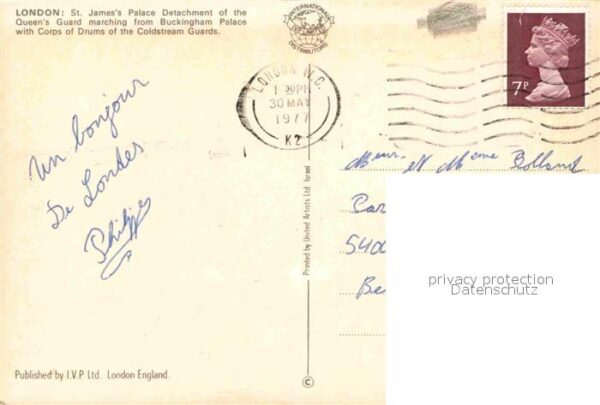 LONDON: St. James's Palace Detachment of the
Queen's Guard marching from Buckingham Palace
with Corps of Drums of the Coldstream Guards.
INTERNATIONAL
DISTRIBUTORS
7P
LONDON W.C.
1 30PM
30 MAY
1977
K2
Un bonjour
De Londes
Philippe
Meur. et Meme Rolland
Car
540
Be
privacy protection
Datenschutz
Printed by United Artists Ltd Israel
Published by I.V.P Ltd. London England.
©